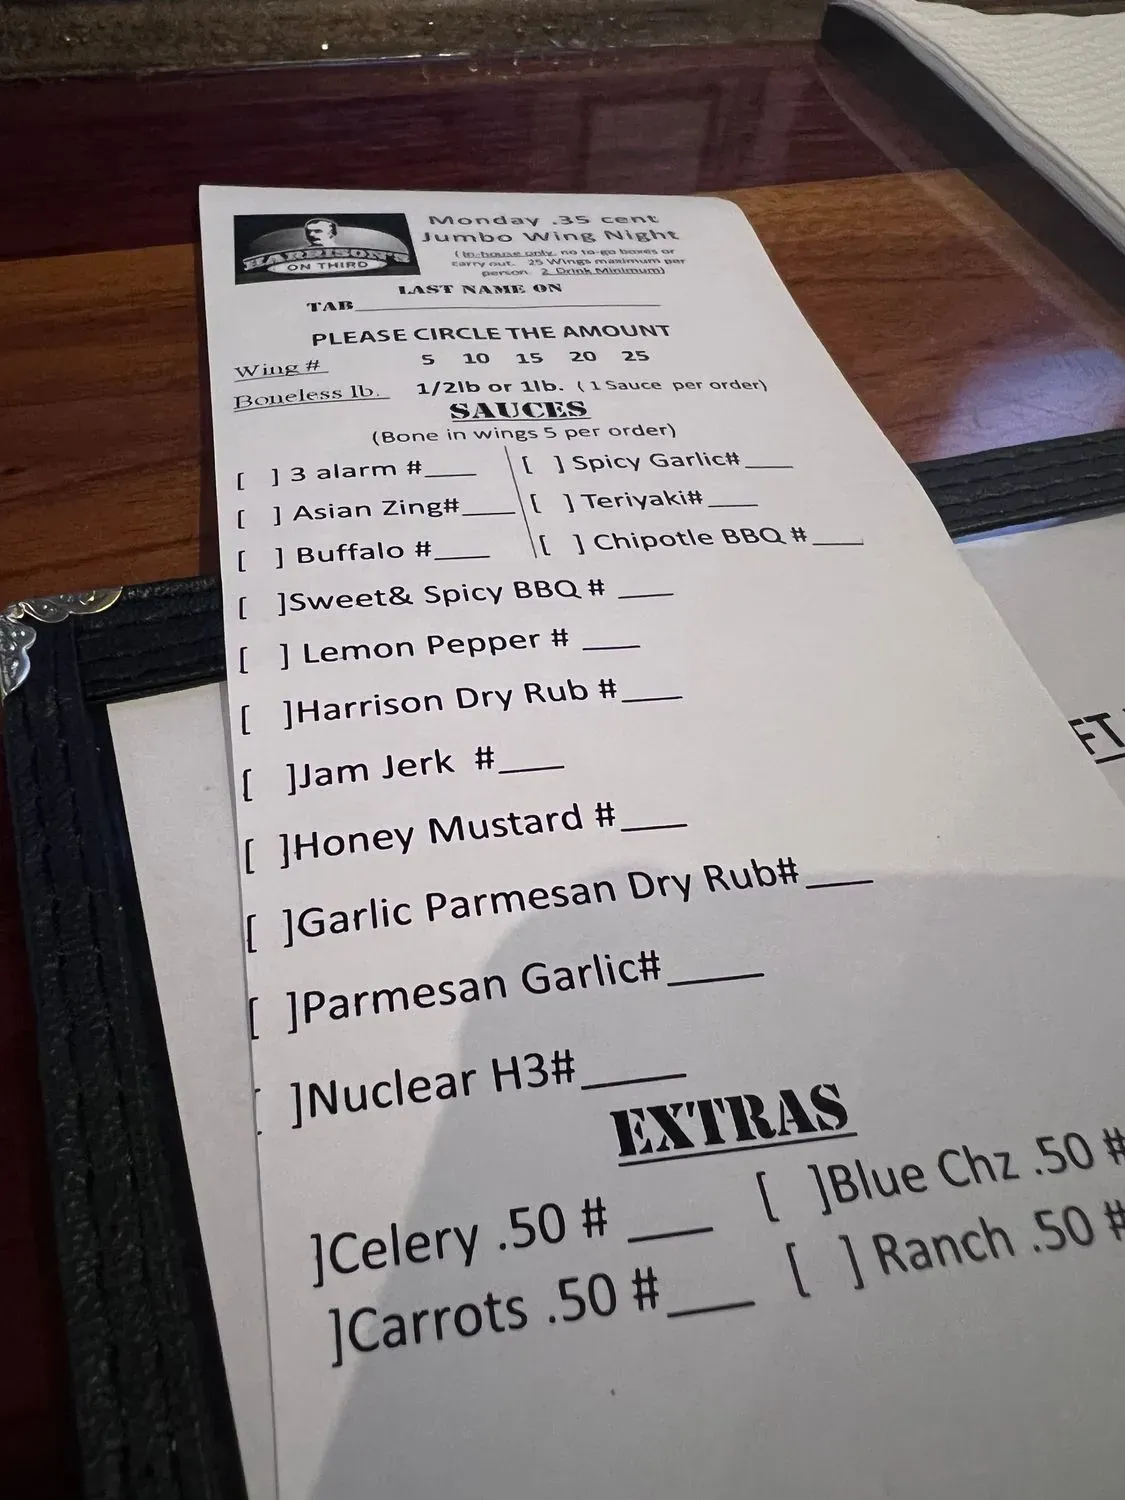 HARRISON'S
ON THIRD
Monday .35 cent
Jumbo Wing Night
(In-house only, no to-go boxes or
carry out. 25 Wings maximum per
person. 2 Drink Minimum)
LAST NAME ON
TAB____________________
PLEASE CIRCLE THE AMOUNT
Wing # 5 10 15 20 25
Boneless lb. 1/2lb or 1lb. ( 1 Sauce per order)
SAUCES
(Bone in wings 5 per order)
[ ] 3 alarm #____ [ ] Spicy Garlic#____
[ ] Asian Zing#____ [ ] Teriyaki#____
[ ] Buffalo #____ [ ] Chipotle BBQ #____
[ ]Sweet& Spicy BBQ # ____
[ ] Lemon Pepper # ____
[ ]Harrison Dry Rub #____
[ ]Jam Jerk #____
[ ]Honey Mustard #____
[ ]Garlic Parmesan Dry Rub#____
[ ]Parmesan Garlic#____
[ ]Nuclear H3#____
EXTRAS
]Celery .50 # ____ [ ]Blue Chz .50 #
]Carrots .50 #____ [ ] Ranch .50 #
FT